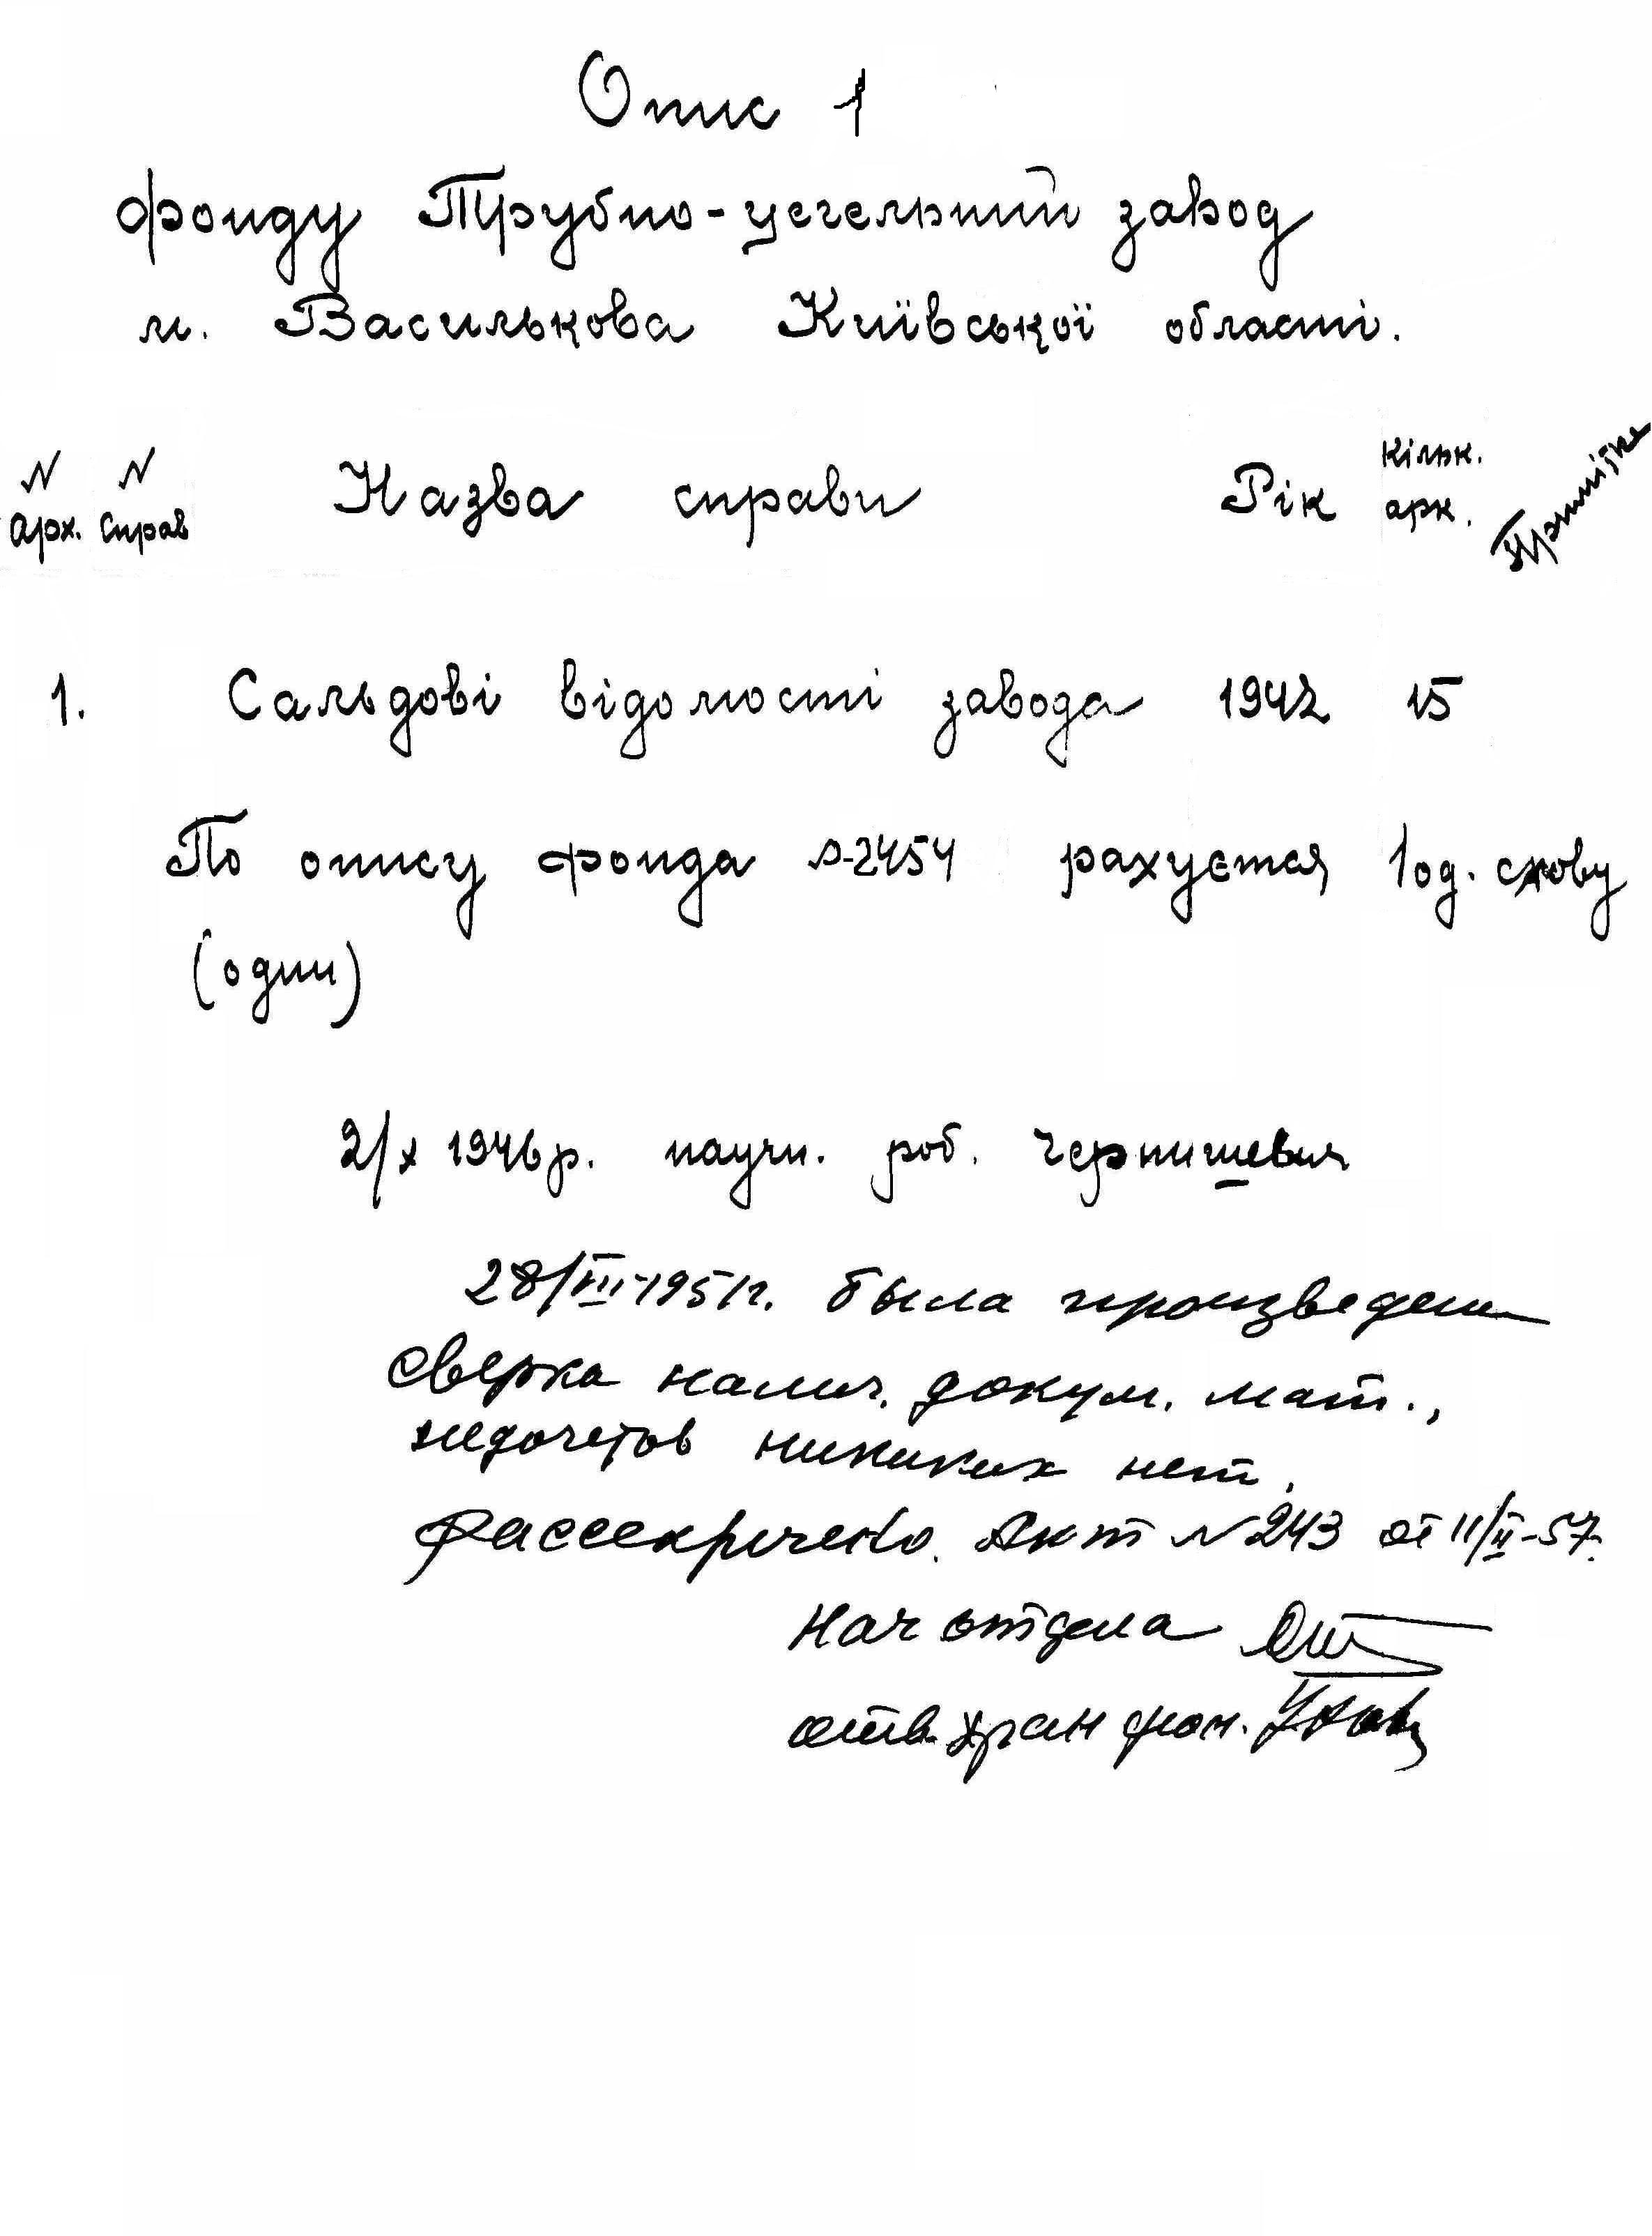 Опис 1
фонду Трубно-цегельний завод
м. Василькова Київської області.
N арх. N справ Назва справи Рік Кільк. арк. Примітка
1. Сальдові відомості завода 1942 15
По опису фонда р-2454 рахуется 1 од. схову
(один)
2/X 1946 р. научн. роб. Чернишевич
28/III-1951г. была произведена
сверка налич. докум. мат.,
недочетов никиких нет,
Рассекречено. Акт N 243 от 11/II-57.
Нач отдела
отв. хран фон.